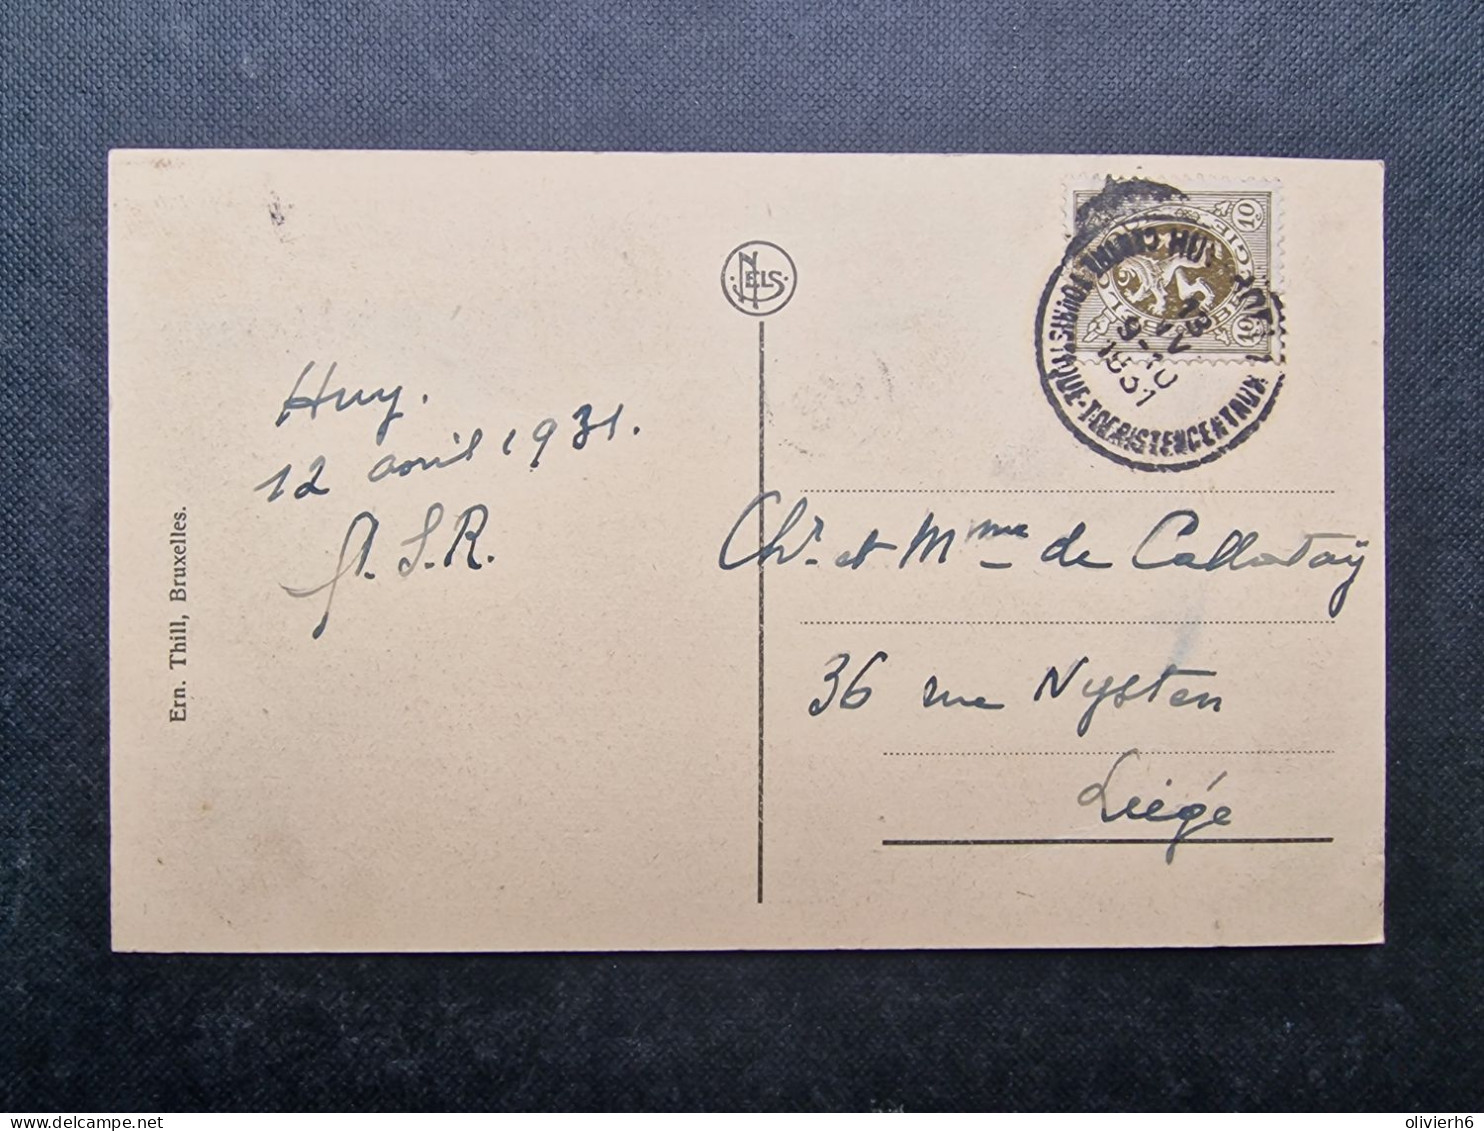 Huy.
12 avril 1931.
A. S. R.
Ern. Thill, Bruxelles.
NELS
10
10
BELGIE BELGIQUE
HUY HOEI
CENTRE TOURISTIQUE - TOERISTENCENTRUM
13
IV
9-10
1931
Chr. et Mme de Callataÿ
36 rue Nysten
Liége
olivierh6